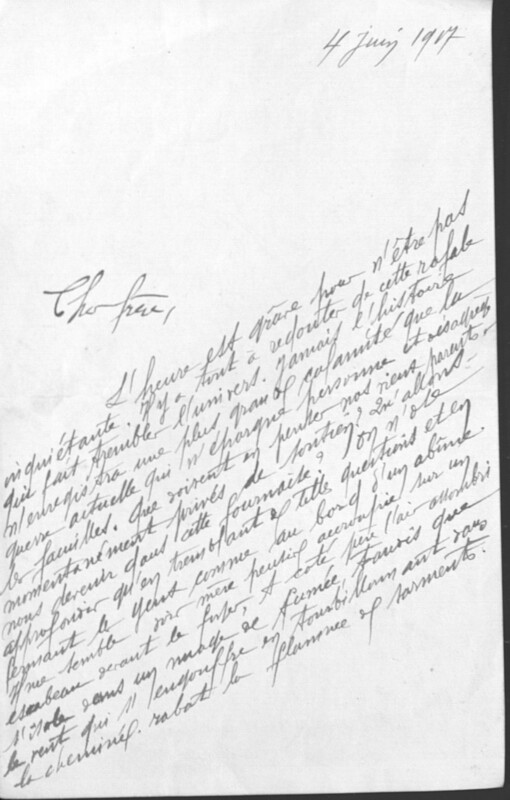 4 Juin 1917
Cher frère,
L'heure est grave pour n'être pas
inquiétante. Il y a tout à redouter de cette rafale
qui fait trembler l'univers. Jamais l'histoire
n'enregistra une plus grande calamité que la
guerre actuelle qui n'épargne personne et
les familles. Que doivent en penser nos vieux parents
momentanément privés de soutien? Qu'allons-
nous devenir dans cette fournaise? On n'ose
approfondir qu'en tremblant de telle questions et en
fermant le yeux comme au bord d'un abîme.
Il me semble voir mère pensive accroupie sur un
escabeau devant le foyer, à côté père l'air assombri
s'isole dans un nuage de fumée, tandis que
le vent qui s'engouffre en tourbillonnant dans
la cheminée rabat la flammée de sarments.